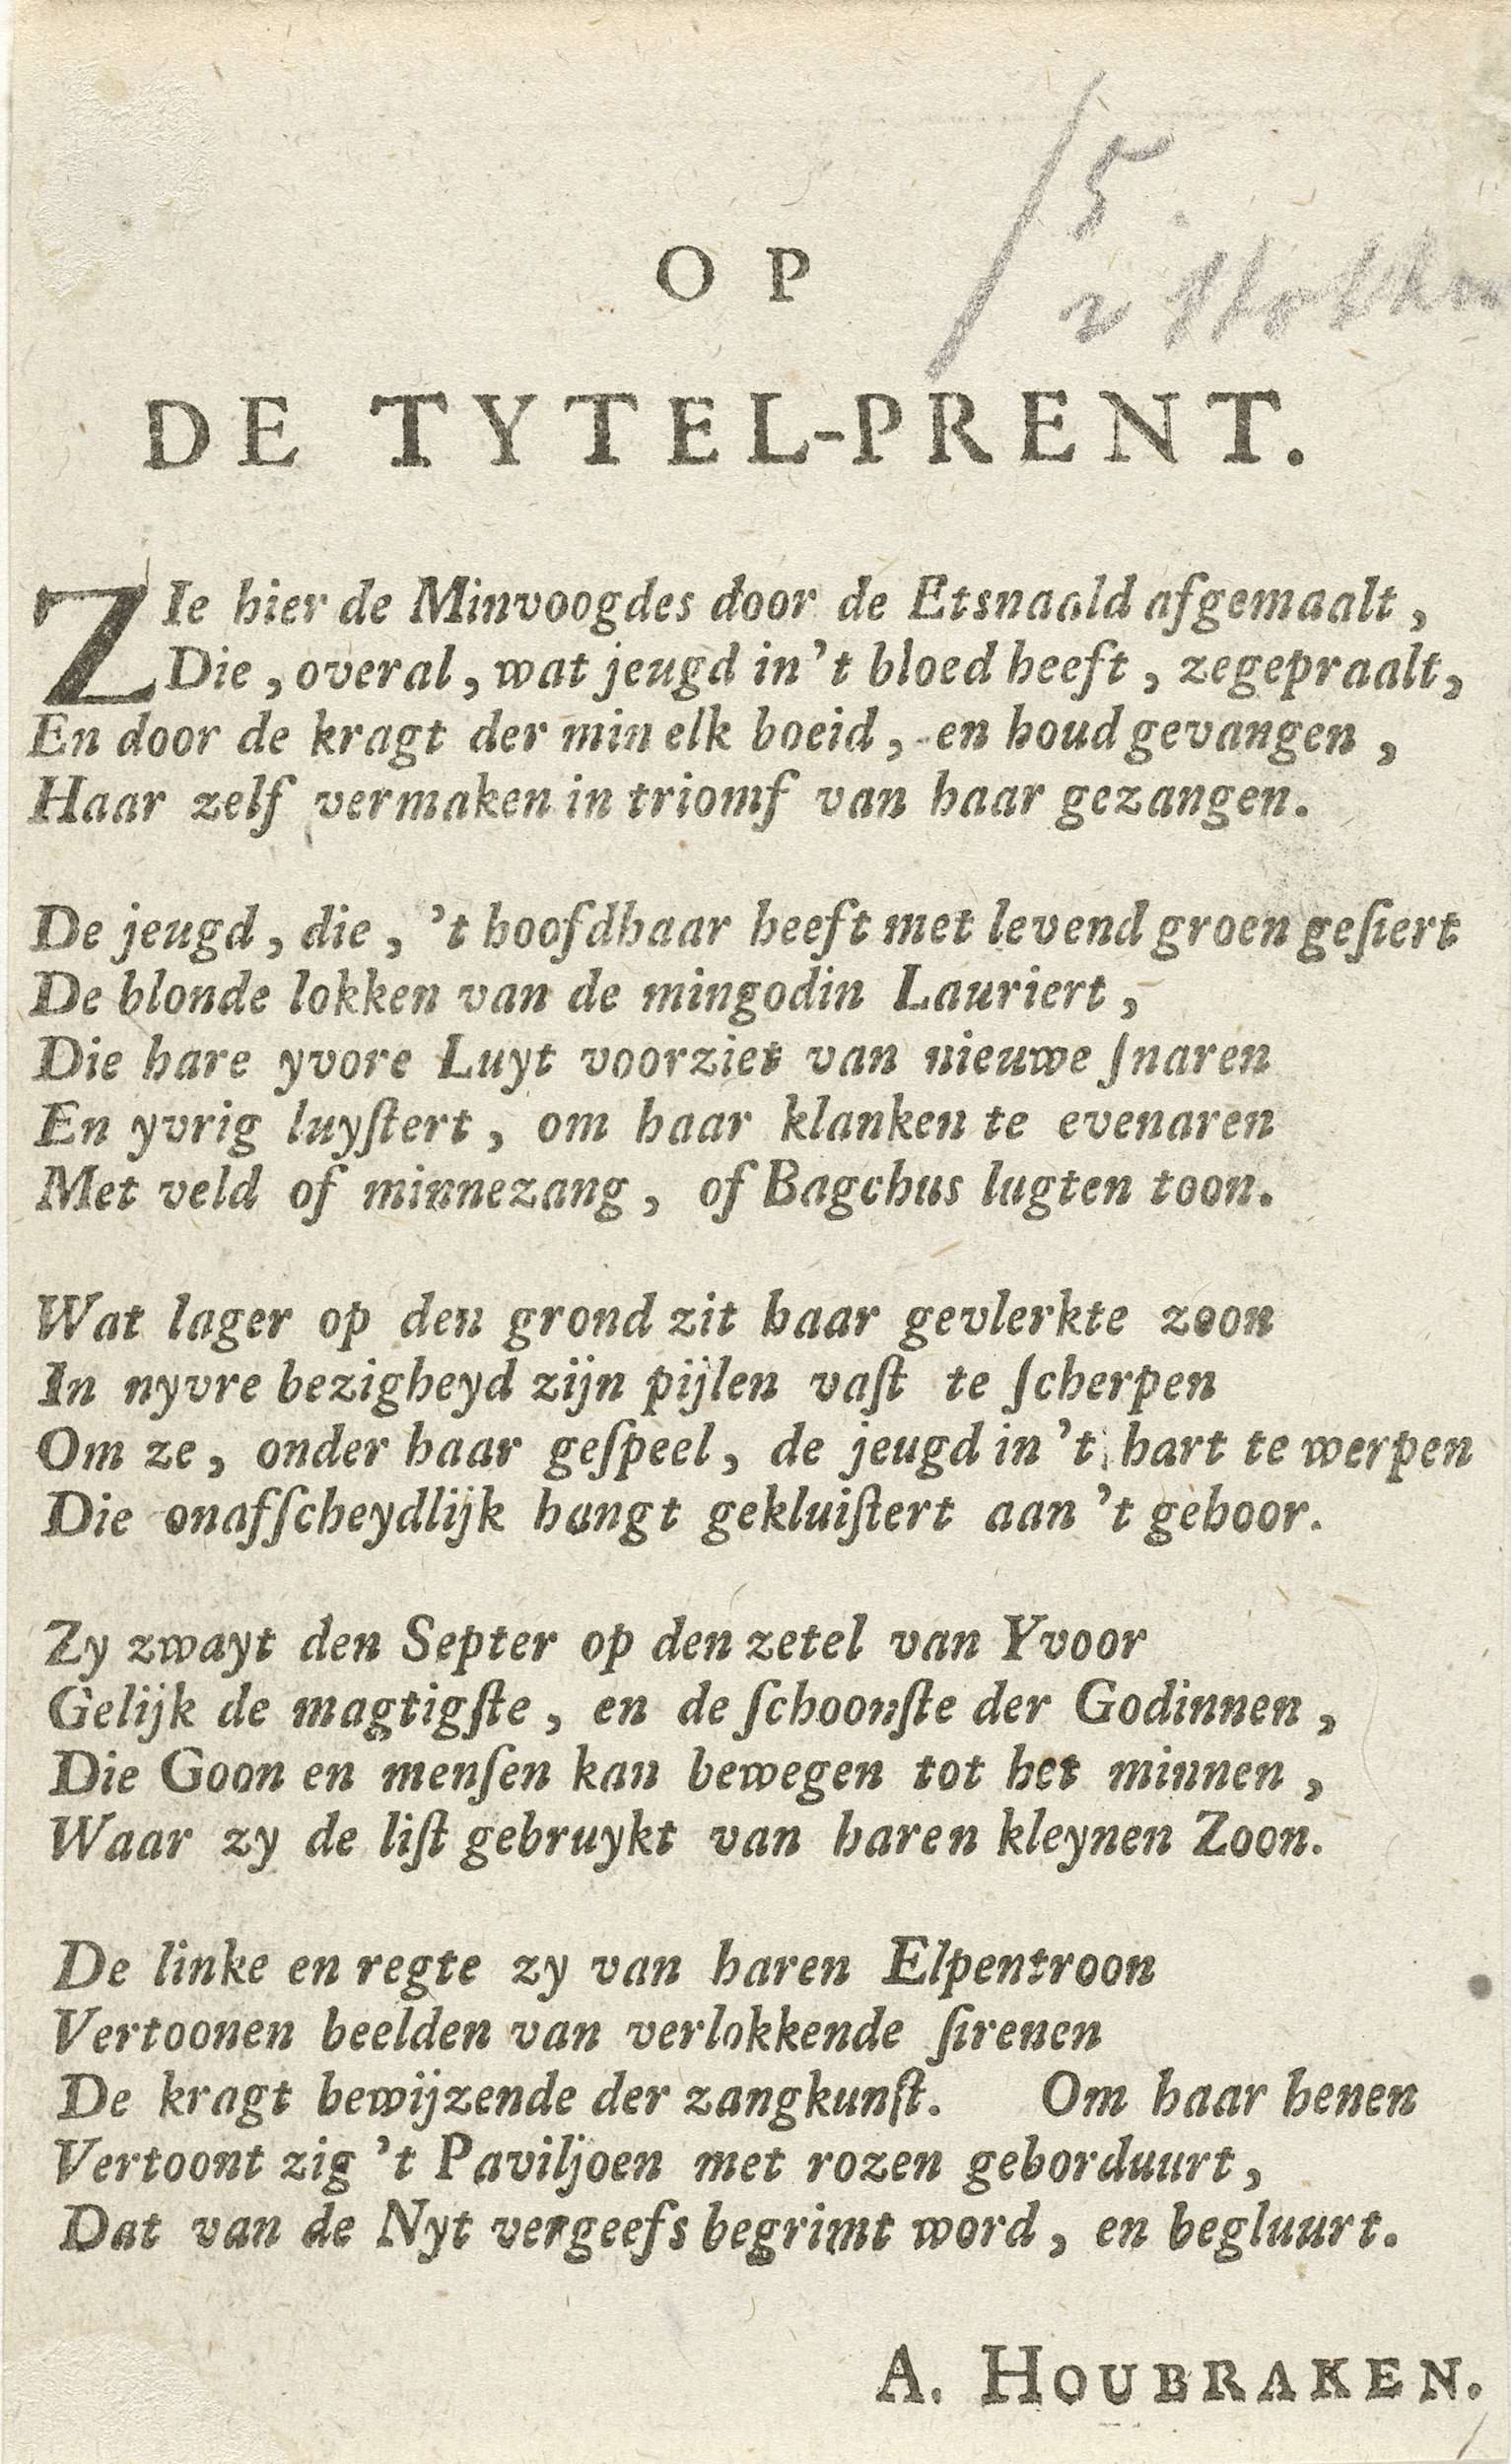 5.
OP
DE TYTEL-PRENT.
ZIe hier de Minvoogdes door de Etsnaald afgemaalt,
Die, overal, wat jeugd in 't bloed heeft, zegepraalt,
En door de kragt der min elk boeid, en houd gevangen,
Haar zelf vermaken in triomf van haar gezangen.
De jeugd, die, 't hoofdhaar heeft met levend groen geſiert
De blonde lokken van de mingodin Lauriert,
Die hare yvore Luyt voorziet van nieuwe ſnaren
En yvrig luyſtert, om haar klanken te evenaren
Met veld of minnezang, of Bagchus lugten toon.
Wat lager op den grond zit haar gevlerkte zoon
In nyvre bezigheyd zijn pijlen vaſt te ſcherpen
Om ze, onder haar geſpeel, de jeugd in 't hart te werpen
Die onafſcheydlijk hangt gekluiſtert aan 't gehoor.
Zy zwayt den Septer op den zetel van Yvoor
Gelijk de magtigſte, en de ſchoonſte der Godinnen,
Die Goon en menſen kan bewegen tot het minnen,
Waar zy de liſt gebruykt van haren kleynen Zoon.
De linke en regte zy van haren Elpentroon
Vertoonen beelden van verlokkende ſirenen
De kragt bewijzende der zangkunſt. Om haar henen
Vertoont zig 't Paviljoen met rozen geborduurt,
Dat van de Nyt vergeefs begrimt word, en begluurt.
A. HOUBRAKEN.